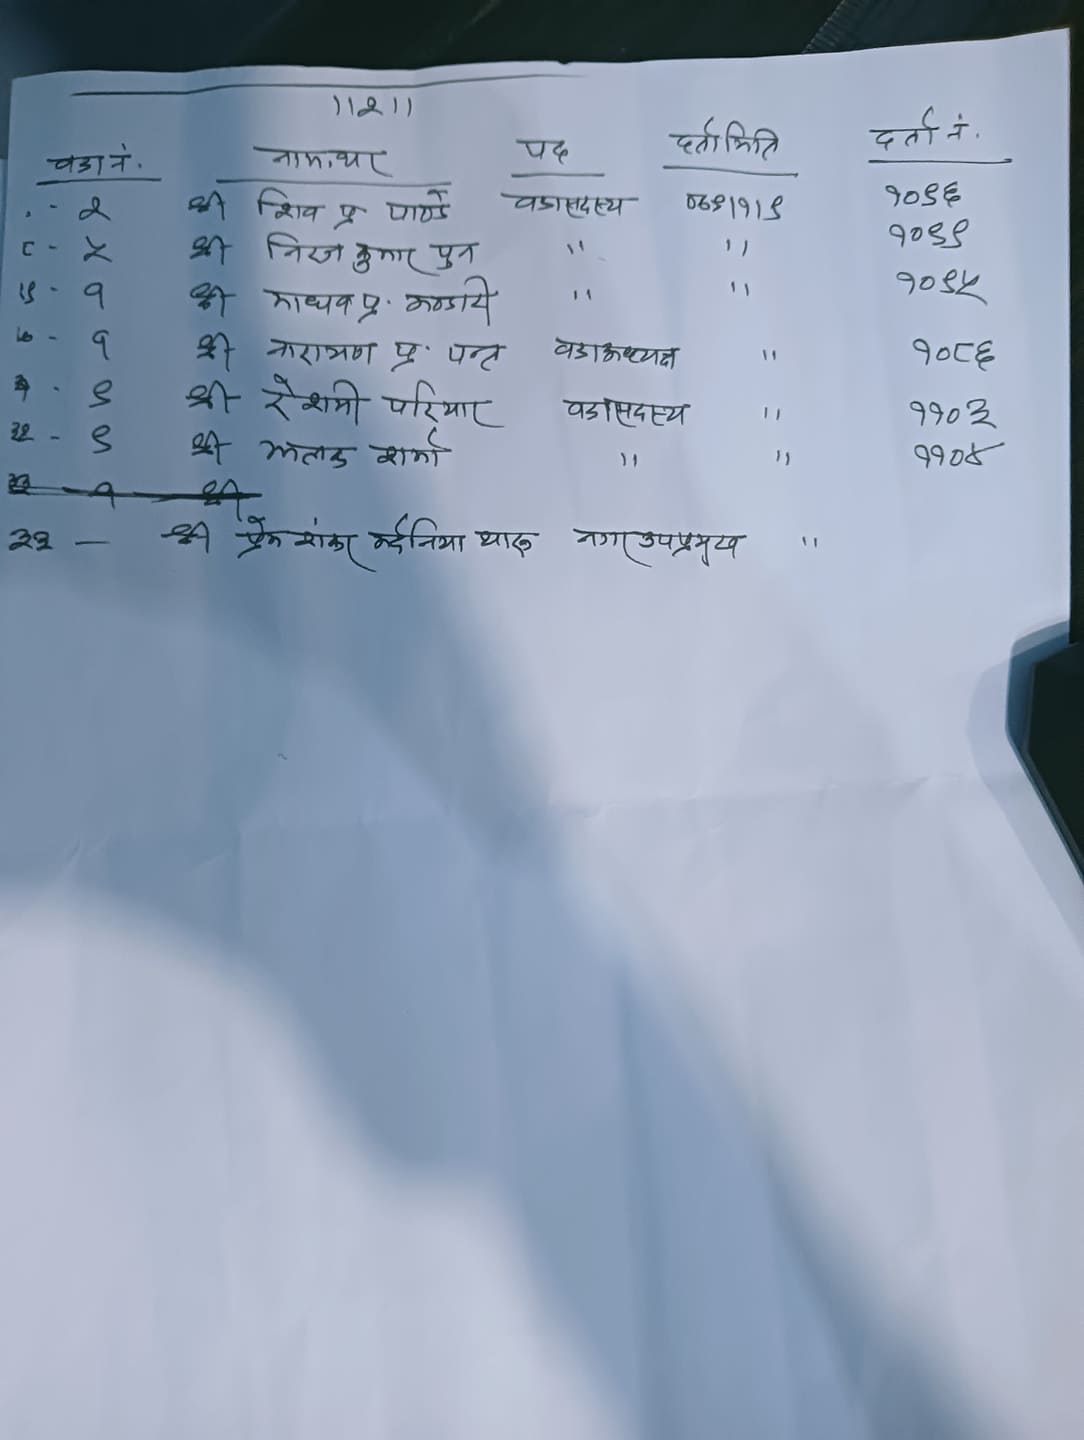 ॥२॥
वडा नं. नाम, थर पद दर्ता मिति दर्ता नं.
२ श्री शिव प्र पाण्डे वडासदस्य ०७९।१।९ १०९६
८ - ५ श्री निरज कुमार पुन " " १०९९
१९ - १ श्री माधव प्र. भण्डारी " " १०९५
- १ श्री नारायण प्र. पन्त वडाअध्यक्ष " १०८६
- ९ श्री रेशमी परियार वडासदस्य " ११०३
३२ - ९ श्री शर्मा " " ११०४
१ श्री
३३ — श्री प्रेम शंकर मर्दनिया थारू नगरउपप्रमुख "